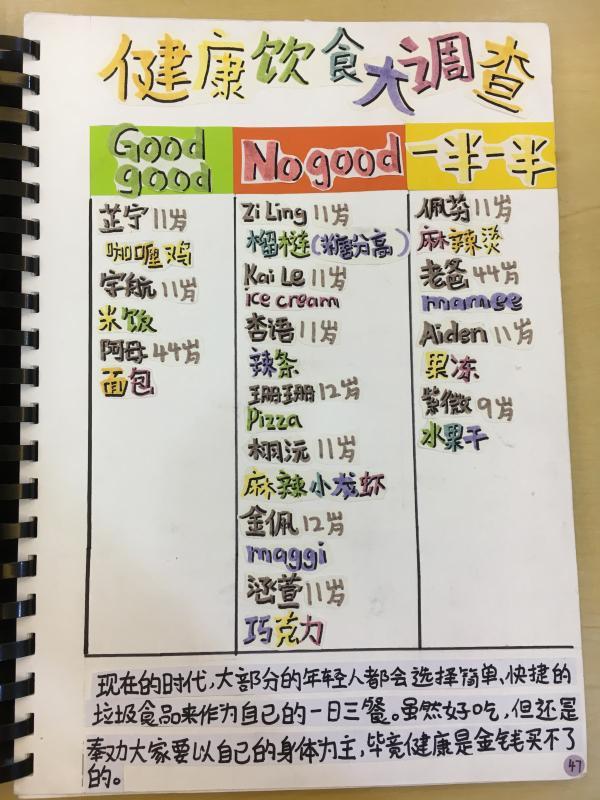 健康饮食大调查
Good good
No good
一半一半
芷宁 11岁
咖喱鸡
宇航 11岁
米饭
阿母 44岁
面包
Zi Ling 11岁
榴梿(糖分高)
Kai Le 11岁
ice cream
杏语 11岁
辣条
珊珊 12岁
Pizza
栩沅 11岁
麻辣小龙虾
金佩 12岁
maggi
涵萱 11岁
巧克力
佩芬 11岁
麻辣烫
老爸 44岁
mamee
Aiden 11岁
果冻
紫微 9岁
水果干
现在的时代,大部分的年轻人都会选择简单、快捷的
垃圾食品来作为自己的一日三餐。虽然好吃,但还是
奉劝大家要以自己的身体为主,毕竟健康是金钱买不了
的。
47